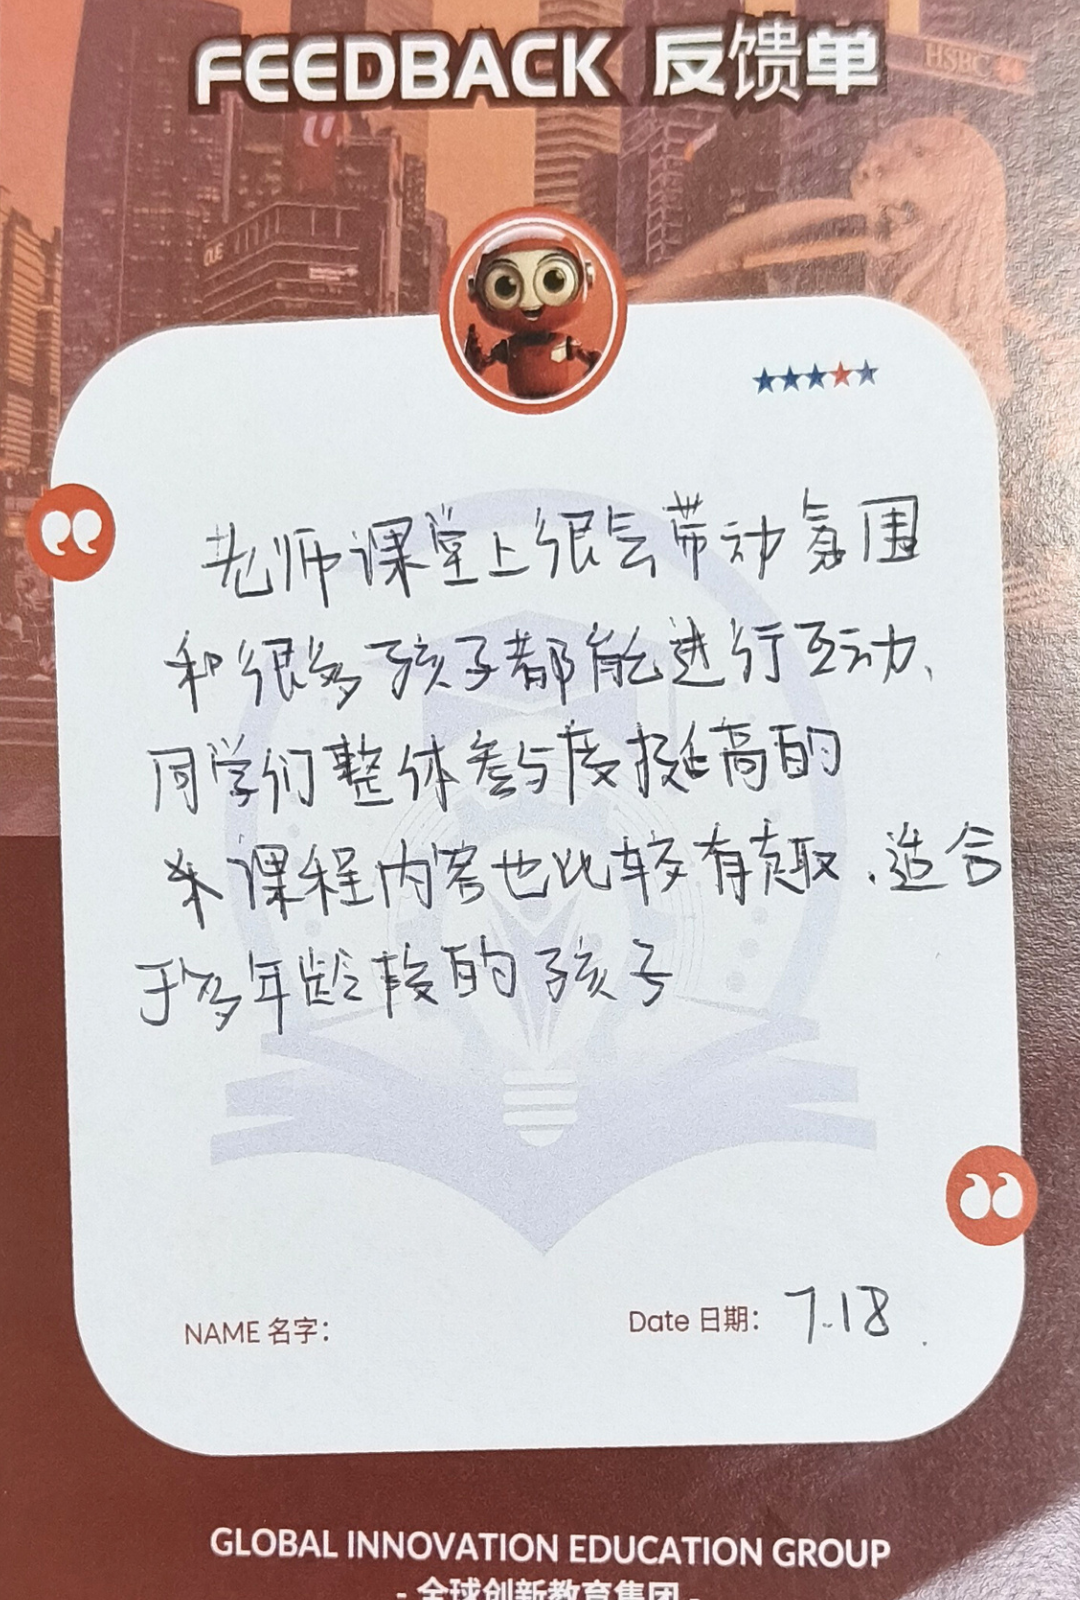 FEEDBACK 反馈单
HSBC
OUE
老师课堂上很会带动氛围
和很多孩子都能进行互动、
同学们整体参与度挺高的
课程内容也比较有趣.适合
于多年龄段的孩子
NAME 名字：
Date 日期： 7.18
GLOBAL INNOVATION EDUCATION GROUP
- 全球创新教育集团 -